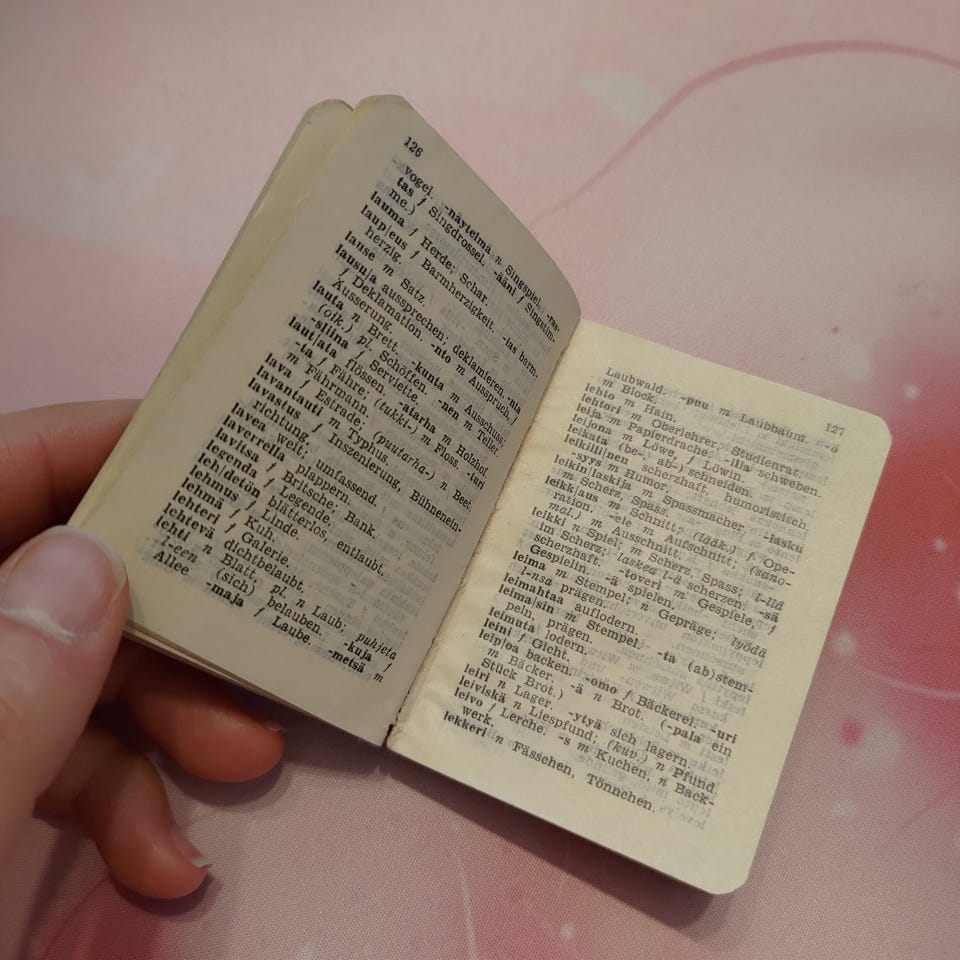 126
-vogel. -näytelmä n Singspiel. -ras-
tas f Singdrossel. -ääni f Singstim-
me.)
lauma f Herde; Schar.
laup|eus f Barmherzigkeit. -ias barm-
herzig.
lause m Satz.
lausu|a aussprechen; deklamieren. -nta
f Deklamation. -nto m Ausspruch, f
Äusserung.
lauta n Brett. -kunta m Ausschuss;
(oik.) pl. Schöffen. -nen m Teller.
-sliina f Serviette. -atarha m Holzhof.
laut|ata flössen. -turi
-ta f Fähre; (tukki-) m Floss.
m Fährmann. (puutarha-) n Beet.
lava f Estrade.
lavantauti m Typhus.
lavastus f Inszenierung, Bühnenein-
richtung.
lavea weit; umfassend.
laverrella plappern.
lavitsa f Britsche, Bank.
legenda f Legende.
leh|detön blätterlos, entlaubt.
lehmus f Linde.
lehmä f Kuh.
lehteri f Galerie.
lehtevä dichtbelaubt.
lehti n Blatt, pl. n Laub; puhjeta
l-een (sich) belauben. -kuja f
Allee -maja f Laube -metsä m
127
Laubwald. -puu m Laubbaum. -ö
m Block.
lehto m Hain.
lehtori m Oberlehrer, Studienrat.
leija m Papierdrache; -illa schweben.
leijona m Löwe, f Löwin.
leikata (be-, ab-) schneiden.
leikilli|nen scherzhaft, humoristisch.
-syys m Humor.
leikin|laskija m Spassmacher. -lasku
m Scherz, Spass.
leikk|aus m Schnitt; (lääk.) f Ope-
ration. -ele m Aufschnitt; (sano-
mal.) m Ausschnitt.
leikki n Spiel; m Scherz, Spass; l-llä
im Scherz; laskea l-ä scherzen. -sä
scherzhaft. -toveri m Gespiele, f
Gespielin. -ä spielen.
leima m Stempel; n Gepräge; lyödä
l-nsa prägen.
leimahtaa auflodern.
leima|sin m Stempel. -ta (ab)stem-
peln, prägen.
leimuta lodern.
leini f Gicht.
leip|oa backen. -omo f Bäckerei. -uri
m Bäcker. -ä n Brot. (-pala ein
Stück Brot.)
leiri n Lager. -ytyä sich lagern.
leiviskä n Liespfund; (kuv.) n Pfund.
leivo f Lerche. -s m Kuchen, n Back-
werk.
lekkeri n Fässchen, Tönnchen.